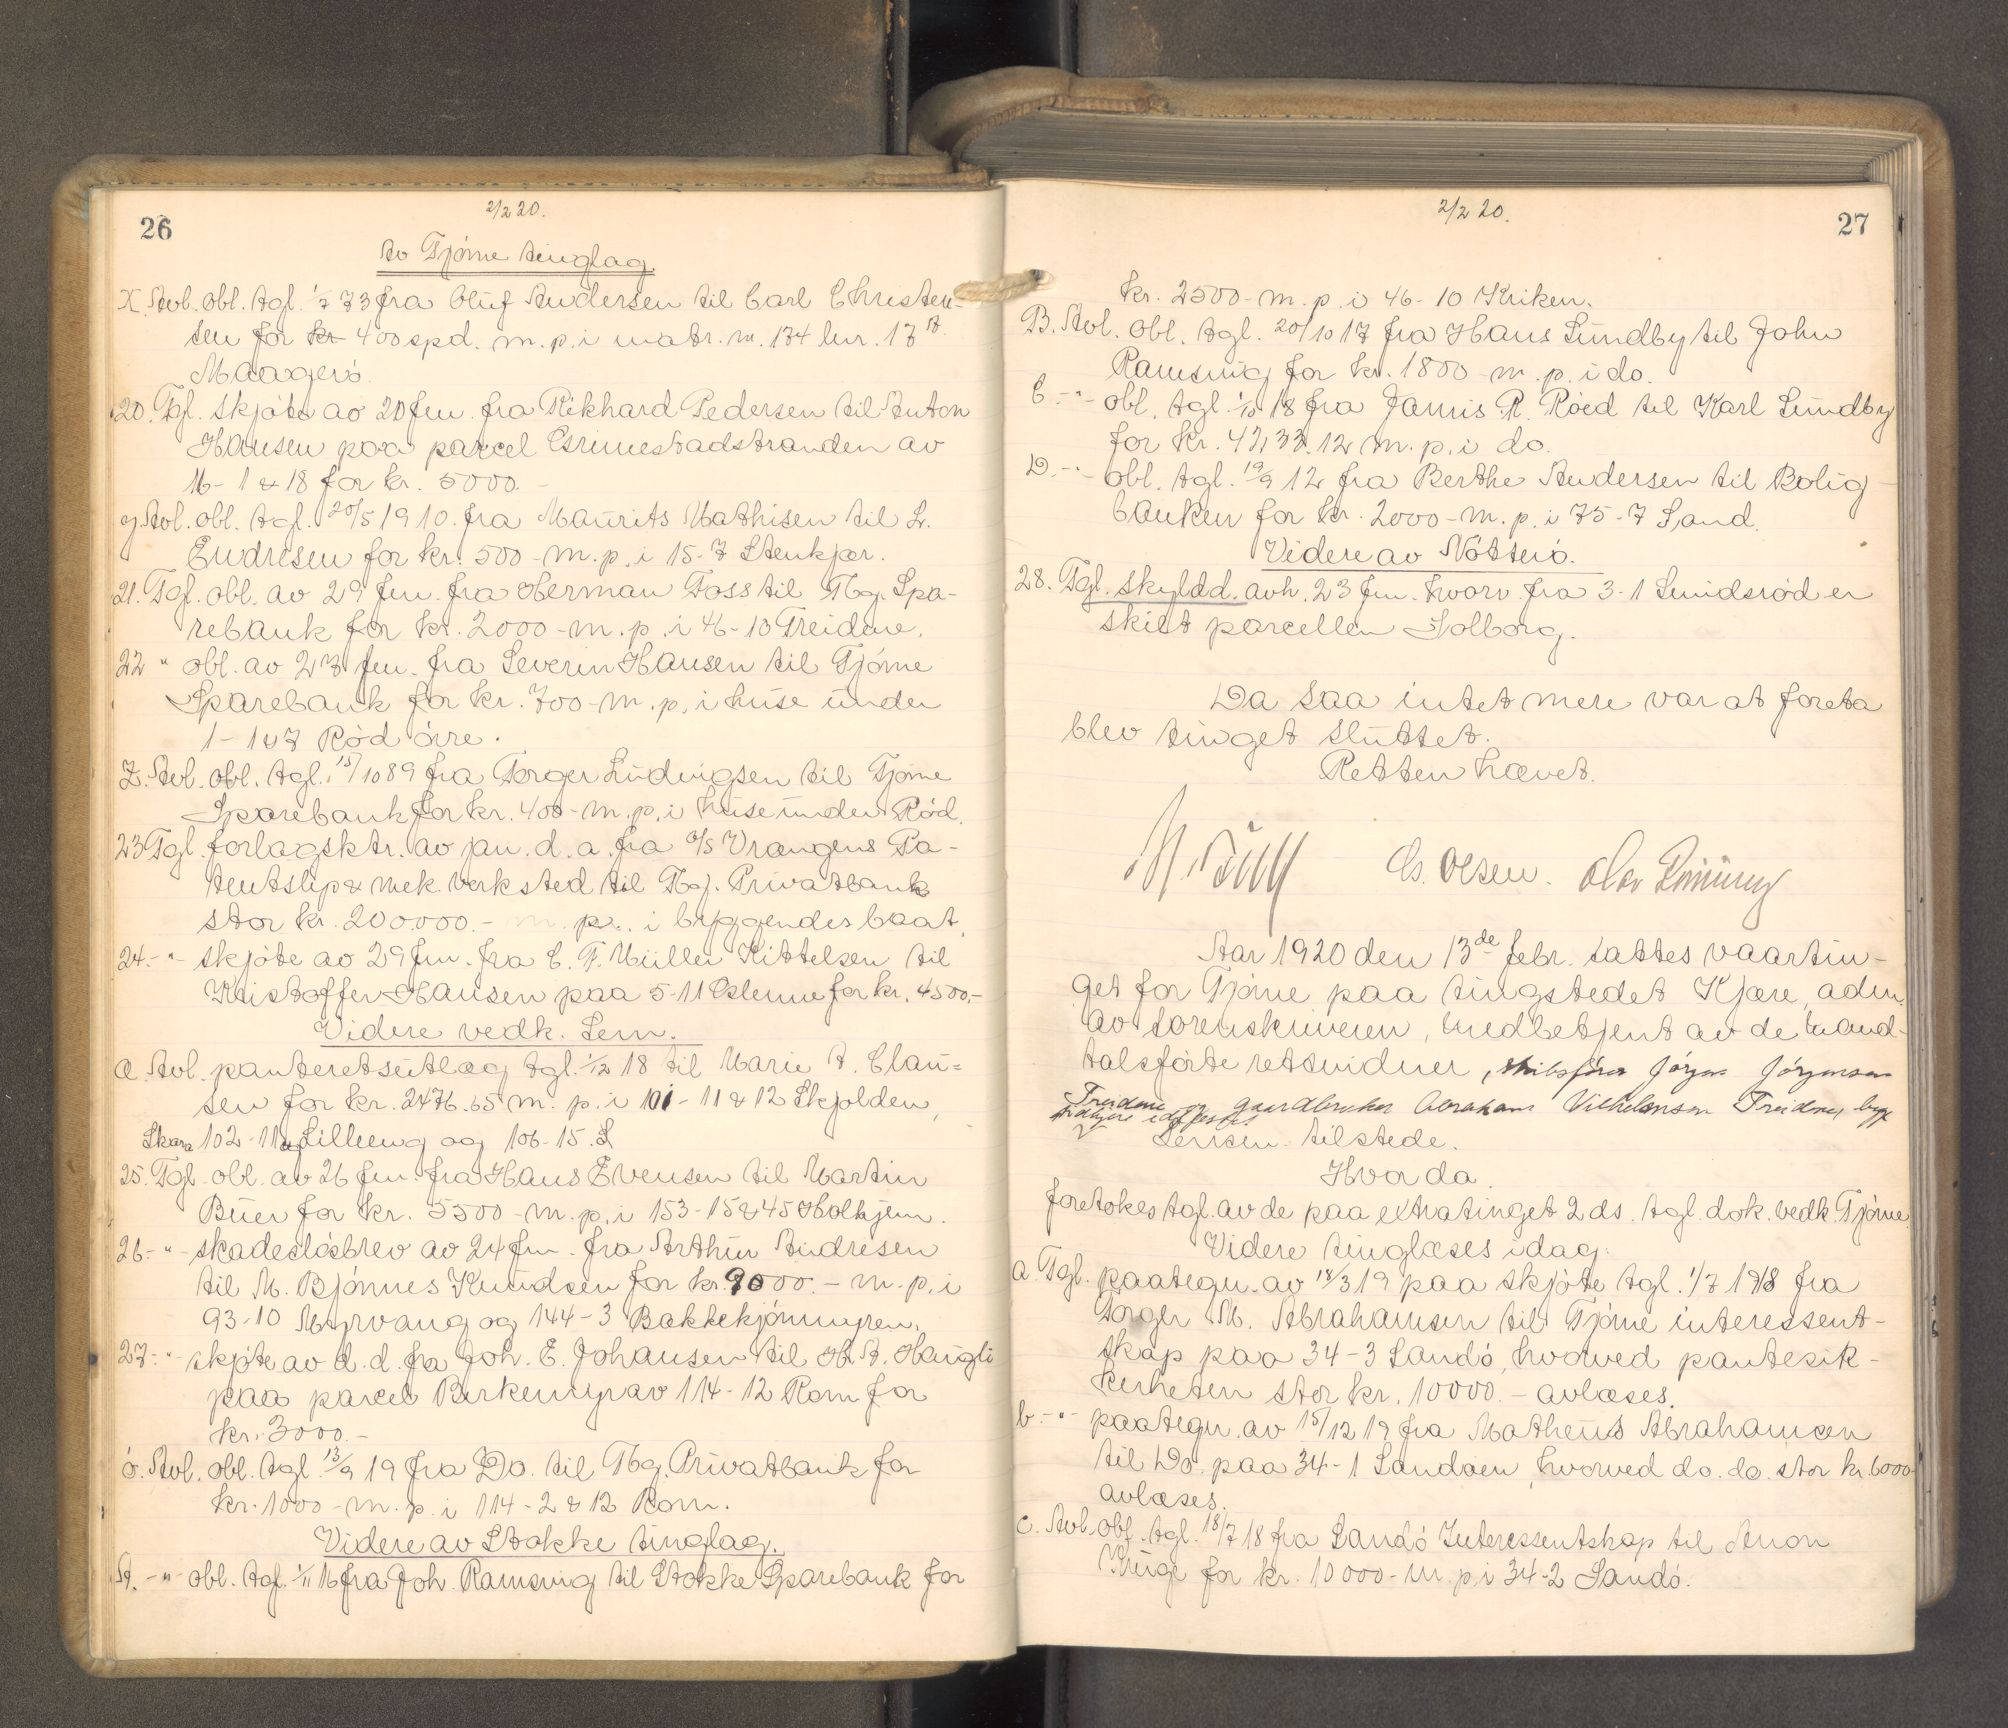 26
2/2 20.
Av Tjöme tinglag.
X. Avl. obl. tgl. 1/7 73 fra Oluf Andersen til Carl Christen-
sen for kr 400 spd. m. p. i matr. nr. 134 lnr. 17
Maagerö.
20. Tgl. skjöte av 20 fm. fra Rikhard Pedersen til Anton
Hansen paa parcel Grimestadstranden av
16-1 & 18 for kr. 5000.-
y. Avl. obl. tgl. 20/5 1910 fra Maurits Mathisen til L.
Endresen for kr. 500 - m. p. i 15-7 Stenkjær.
21. Tgl. obl. av 29 fm. fra Herman Foss til Tbg. Spa-
rebank for kr. 2000 - m. p. i 46-10 Treidene.
22 " obl. av 23 fm. fra Severin Hansen til Tjöme
Sparebank for kr. 700 - m. p. i huse under
1-1 & 7 Röd övre.
Z. Avl. obl. tgl. 15/10 89 fra Torger Ludvigsen til Tjöme
Sparebank for kr. 400 - m. p. i huse under Röd.
23 Tgl. forlagsktr. av jan. d. a. fra A/S Vrangens Pa-
tentslip & mek. Verksted til Tbg. Privatbank
stor kr. 200000.- m. p. i byggendes baat.
24.-"- skjöte av 29 fm. fra C. F. Müller Kittelsen til
Kristoffer Hansen paa 5-11 Österne for kr. 4500.-
Videre vedk. Sem.
æ. Avl. panteretsutlæg tgl. 1/12 18 til Marie A. Clau-
sen for kr. 2476.65 m. p. i 101-11 & 12 Skjolden,
102-11 Lilleeng og 106-15. S. Skara
25. Tgl. obl. av 26 fm. fra Hans Evensen til Martin
Buer for kr. 5500 - m. p. i 153-15 & 45 Holhjem.
26.-"- skadeslösbrev av 24 fm. fra Arthur Andresen
til M. Bjönnes Knudsen for kr. 9000.- m. p. i
93-10 Myrvang og 144-3 Bakkekjönmyren.
27.-"- skjöte av d. d. fra Joh. E. Johansen til H. A. Haugli
paa parcel Birkemyr av 114-12 Rom for
kr. 3000.-
ö. Avl. obl. tgl. 13/9 19 fra Do. til Tbg. Privatbank for
kr. 1000 - m. p. i 114-2 & 12 Rom.
Videre av Stokke tinglag.
A. -"- obl. tgl. 1/11 16 fra Joh. Ramsvig til Stokke Sparebank for
2/2 20.
27
kr. 2500 - m. p. i 46-10 Kriken.
B. Avl. obl. tgl. 20/10 17 fra Hans Sundby til John
Ramsvig for kr. 1800 - m. p. i do.
C -"- obl. tgl. 1/10 18 fra Jamis R. Röed til Karl Sundby
for kr. 4233.12 m. p. i do.
D. -"- obl. tgl. 19/9 12 fra Berthe Andersen til Bolig-
banken for kr. 2000 - m. p. i 75-7 Sand.
Videre av Nötterö.
28. Tgl. skyldd. avh. 23 fm. hvorv. fra 3-1 Smidsröd er
skilt parcellen Solborg.
Da saa intet mere var at foreta
blev tinget sluttet.
Retten hævet.
Cs. Olsen. Olav
Aar 1920 den 13de febr. sattes vaartin-
get for Tjöme paa tingstedet Kjære, adm.
av sorenskriveren, medbetjent av de mand-
talsförte retsvidner, skibsförer Jörgen Jörgensen
Treidene og gaardbruker Abraham Vilhelmsen Treidene, begge
tidligere edfæstet
Lensm. tilstede.
Hvorda
foretokes tgl. av de paa extratinget 2 ds. tgl. dok. vedk. Tjöme.
Videre tinglæses idag:
a. Tgl. paategn. av 18/3 19 paa skjöte tgl. 1/7 1918 fra
Torger M. Abrahamsen til Tjöme interessent-
skap paa 34-3 Sandö, hvorved pantesik-
kerheten stor kr. 10000.- avlæses.
b.-"- paategn. av 15/12 19 fra Matheus Abrahamsen
til Do. paa 34-1 Sandöen, hvorved do. do. stor kr. 6000-
avlæses.
c. Avl. obl. tgl. 18/7 18 fra Sandö Interessentskap til Anon
Kruge for kr. 10000 - m. p. i 34-2 Sandö.